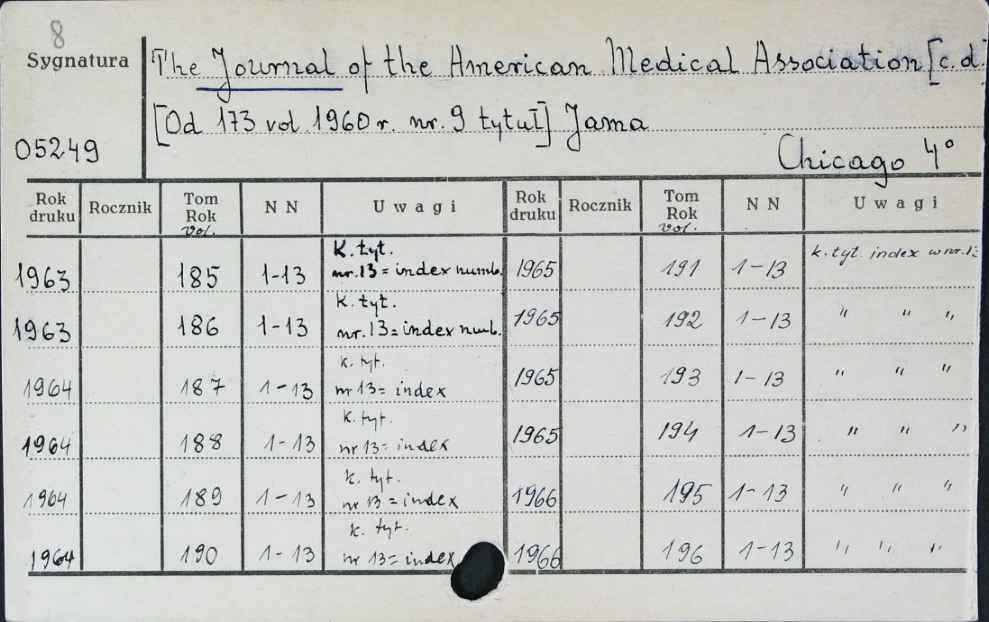 8
Sygnatura
The Journal of the American Medical Association [c.d.
[Od 173 vol 1960 r. nr. 9 tytuł] Jama
05249
Chicago 4°
Rok druku Rocznik Tom Rok vol. NN Uwagi Rok druku Rocznik Tom Rok vol. NN Uwagi
1963 185 1-13 K. tyt. nr. 13 = index numb. 1965 191 1-13 k. tyt. index w nr. 13
1963 186 1-13 K. tyt. nr. 13 = index numb. 1965 192 1-13 " " "
1964 187 1-13 k. tyt. nr 13 = index 1965 193 1-13 " " "
1964 188 1-13 k. tyt. nr 13 = index 1965 194 1-13 " " "
1964 189 1-13 k. tyt. nr 13 = index 1966 195 1-13 " " "
1964 190 1-13 k. tyt. nr 13 = index 1966 196 1-13 " " "